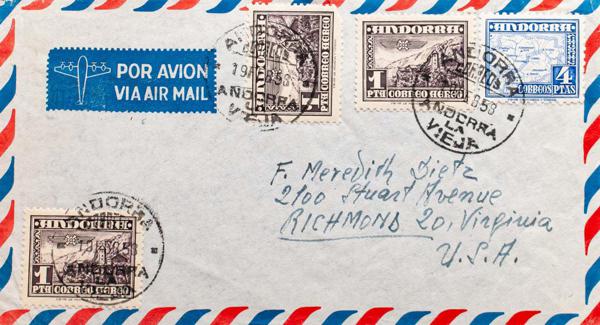 POR AVION
VIA AIR MAIL
ANDORRA
1 PTA CORREO AEREO
ANDORRA
1 PTA CORREO AEREO
ANDORRA
4
CORREOS PTAS
ANDORRA
CORREOS
ANDORRA
LA
VIEJA
ANDORRA
CORREOS
ANDORRA
LA
VIEJA
F. Meredith Dietz
2100 Stuart Avenue
RICHMOND 20, Virginia
U.S.A.
ANDORRA
ANDORRA
LA
VIEJA
ANDORRA
1 PTA CORREO AEREO